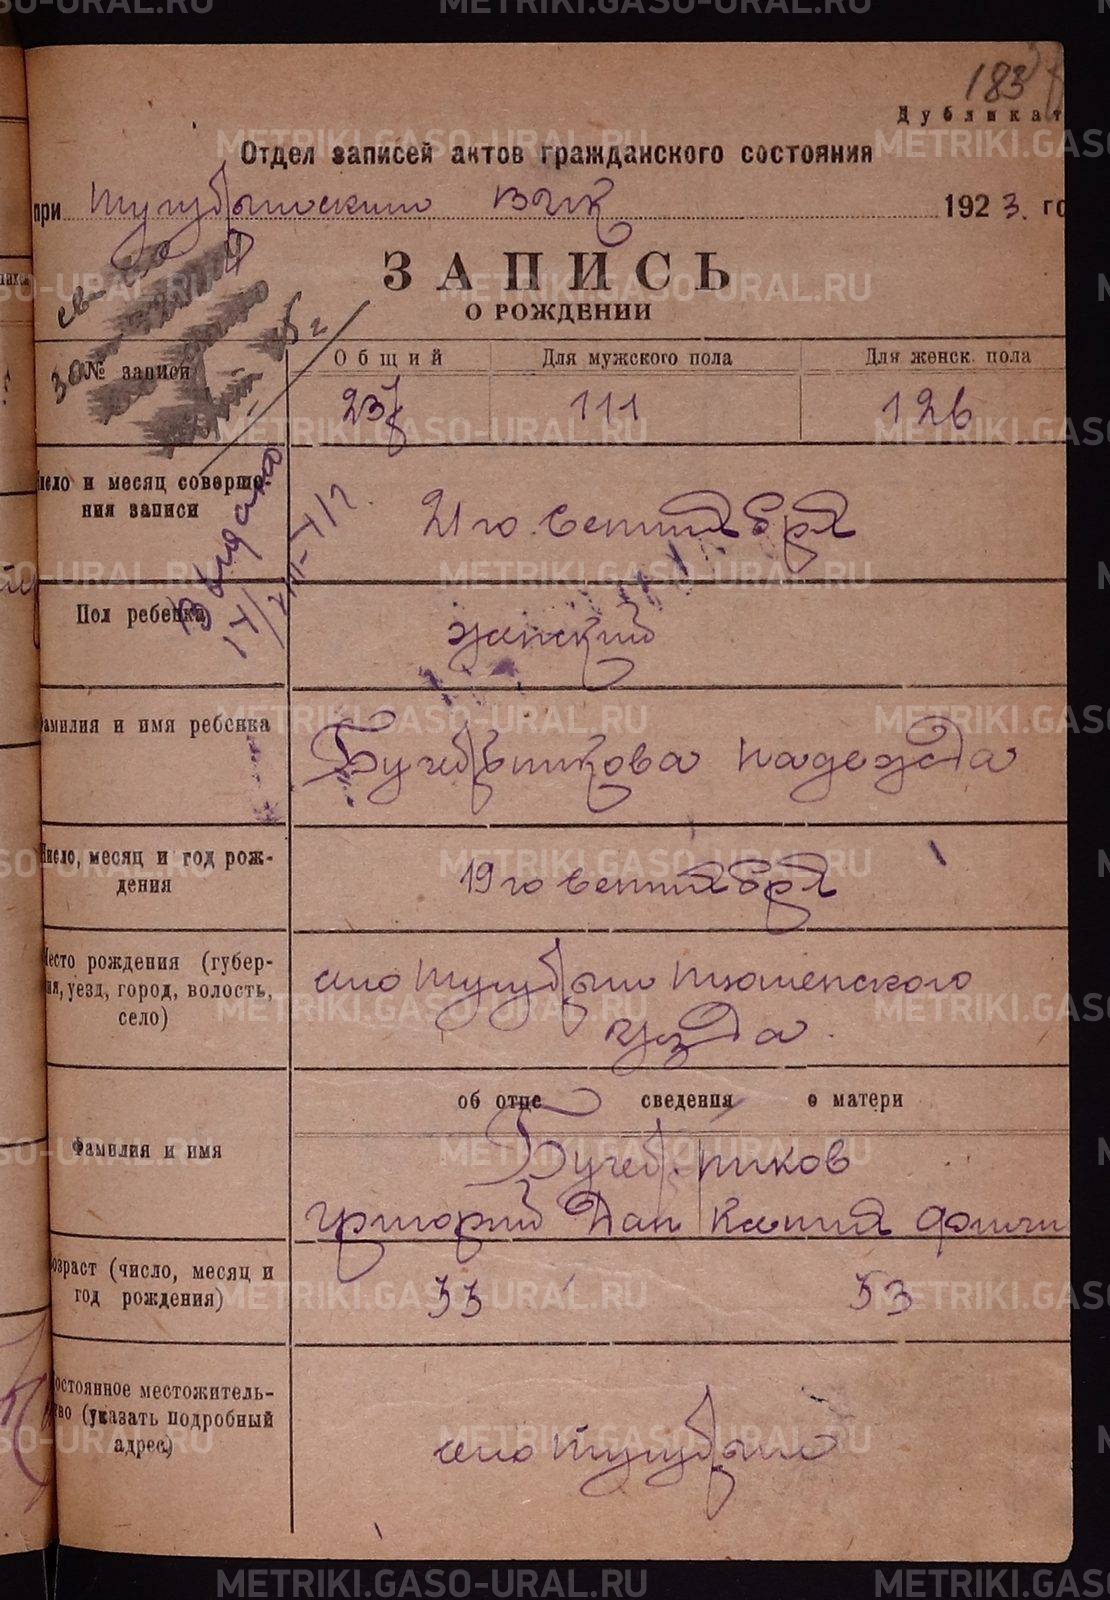 183
Дубликат
Отдел записей актов гражданского состояния
при Тугулымском ВИК 1923. го
ЗАПИСЬ
О РОЖДЕНИИ
№ записи
Общий
Для мужского пола
Для женск. пола
237
111
126
Число и месяц соверше-
ния записи
21 го. Сентября
Выдано
Пол ребенка
женский
Фамилия и имя ребенка
Надежда
Число, месяц и год рож-
дения
19 го Сентября
Место рождения (губер-
ния, уезд, город, волость,
село)
село Тугулым Тюменского
уезда.
об отце сведения о матери
Фамилия и имя
Григорий Дан Ксения Фомин
Возраст (число, месяц и
год рождения)
33
33
Постоянное местожитель-
ство (указать подробный
адрес)
село Тугулым
METRIKI.GASO-URAL.RU